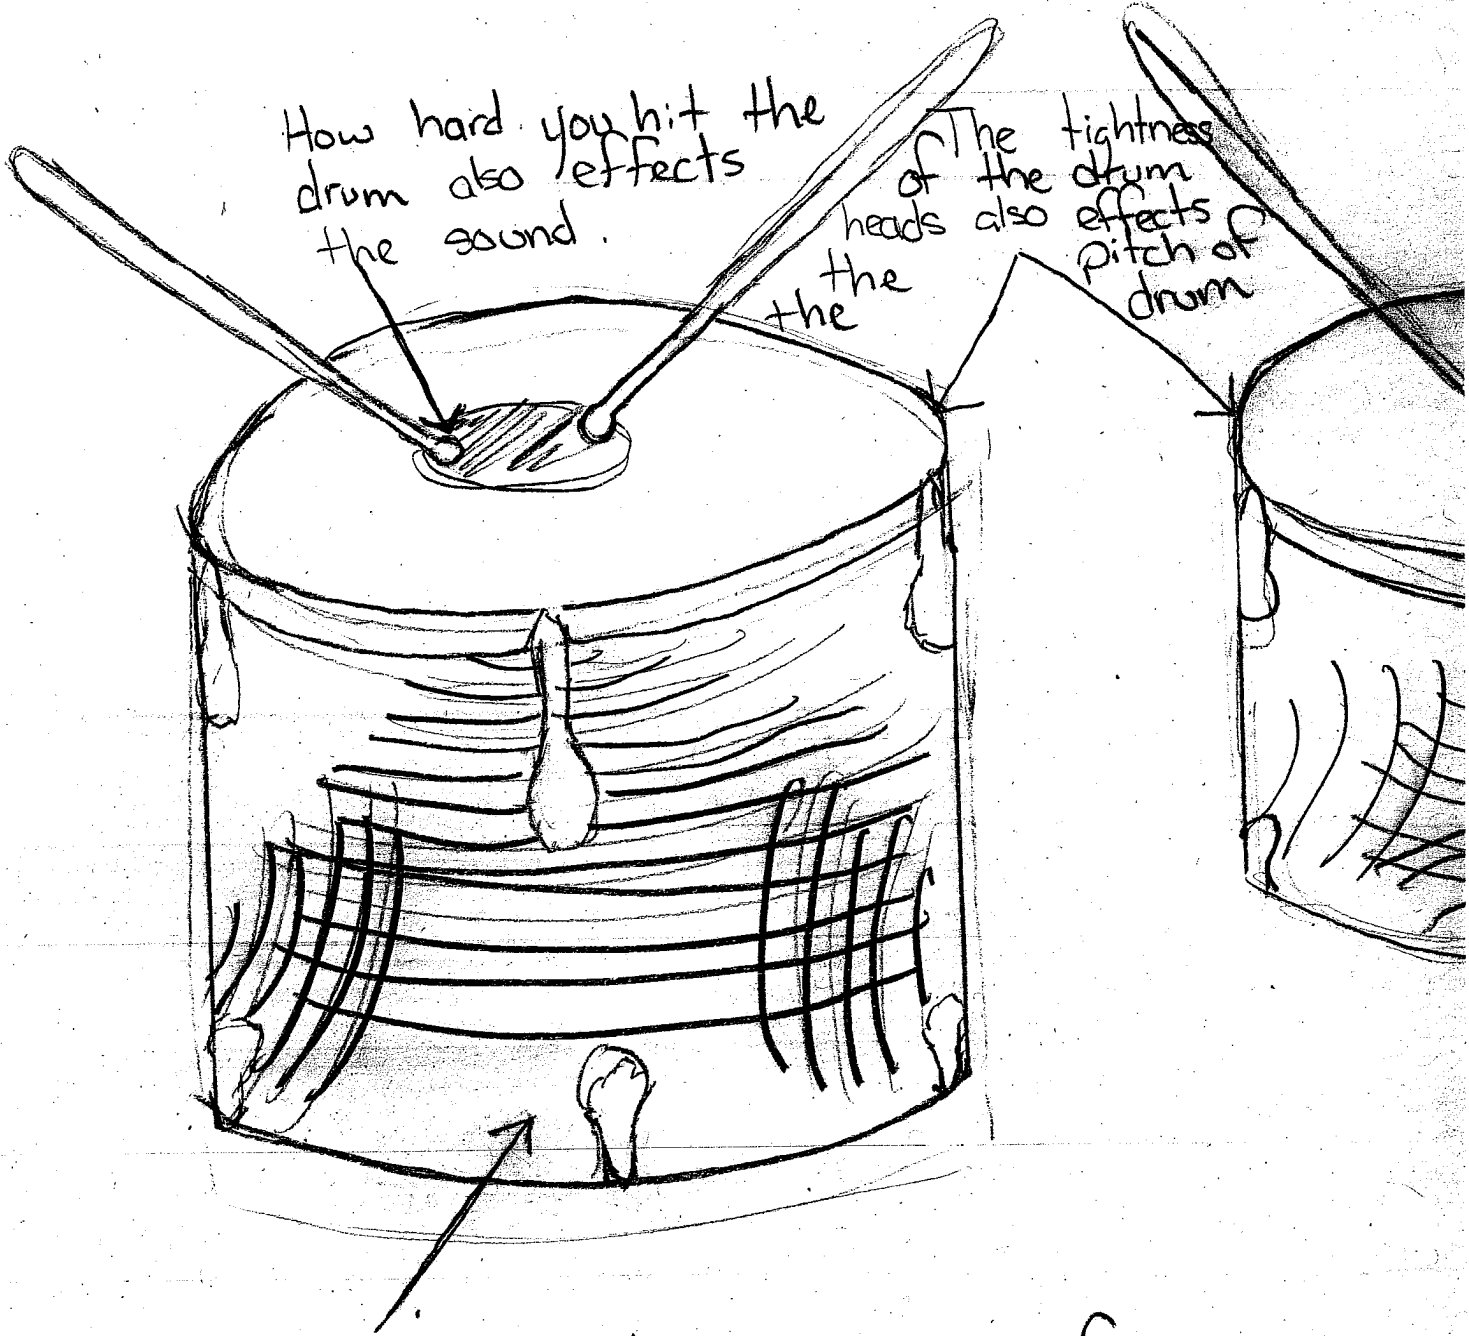 How hard you hit the
drum also effects
the sound.
The tightness
of the drum
heads also effects
the pitch of
the drum